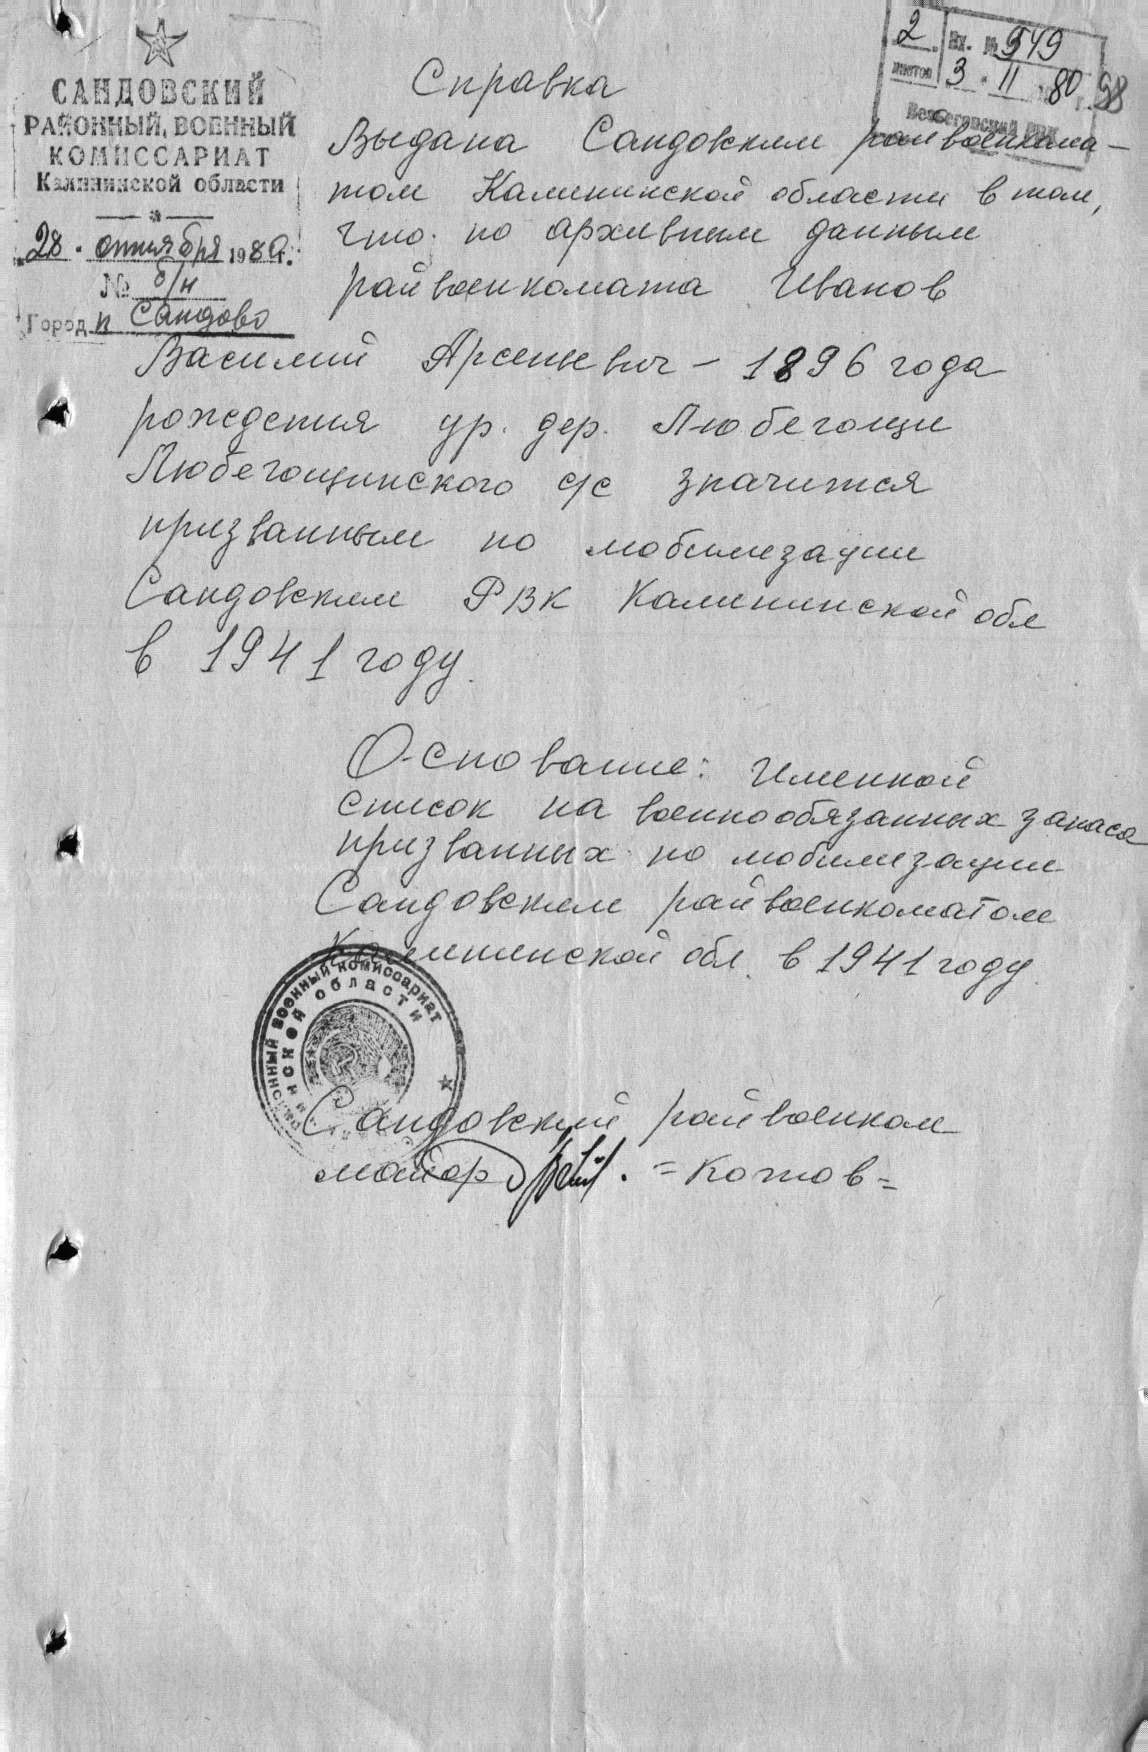 САНДОВСКИЙ
РАЙОННЫЙ ВОЕННЫЙ
КОМИССАРИАТ
Калининской области
28. октября 1980г.
№ б/н
Город п Сандово
2 Вх. № 549
листов 3. 11 80 г. 98
Весьегонский РВК
Справка
Выдана Сандовским райвоенкома-
том Калининской области в том,
что по архивным данным
райвоенкомата Иванов
Василий Арсеньевич - 1896 года
рождения ур. дер. Любегощи
Любегощинского с/с значится
призванным по мобилизации
Сандовским РВК Калининской обл
в 1941 году.
Основание: Именной
список на военнообязанных запаса
призванных по мобилизации
Сандовским райвоенкоматом
Калининской обл. в 1941 году.
районный военный комиссариат
области
Сандовский райвоенком
майор = Котов =